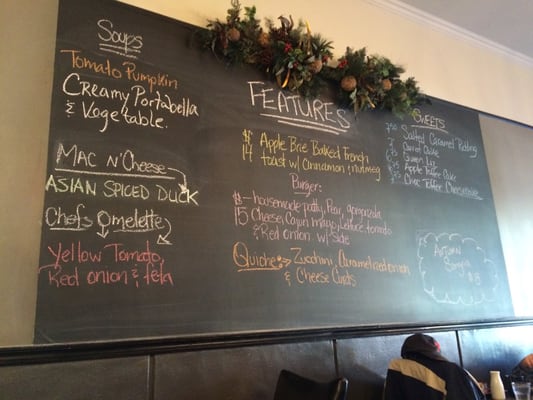 Soups
Tomato Pumpkin
Creamy Portabella
& Vegetable.
Mac n' Cheese
Asian Spiced Duck
Chefs Omelette
Yellow Tomato,
Red onion & feta
FEATURES
$14 Apple Brie Baked French
toast w/ Cinnamon & nutmeg
Burger:
$15 - housemade patty, Pear, gorgonzola
Cheese, Cajun mayo, lettuce, tomato
& Red onion w/ side
Quiche: Zucchini, Caramelized onion
& Cheese Curds
Sweets
Salted Caramel Pudding
Carrot Cake
Apple Toffee Cake
Choc Toffee Cheesecake
Autumn
$8